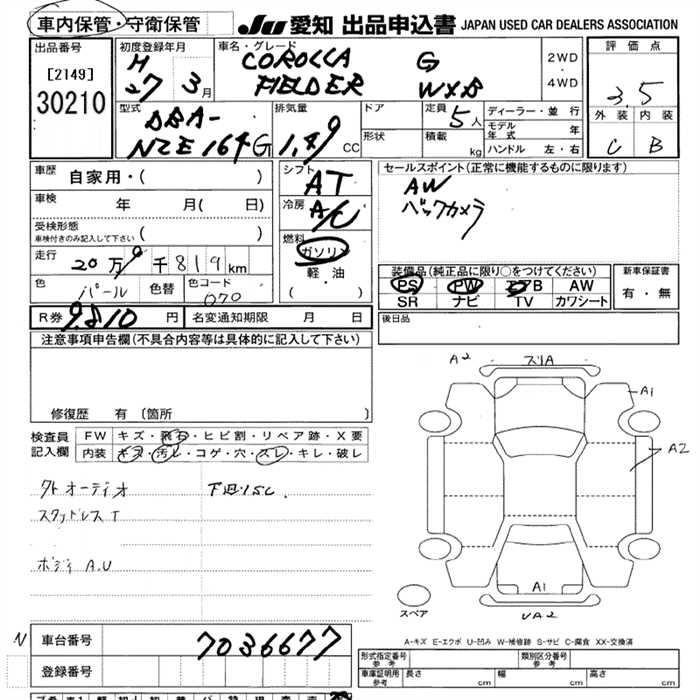 車内保管・守衛保管
JU 愛知 出品申込書 JAPAN USED CAR DEALERS ASSOCIATION
出品番号
[2149]
30210
初度登録年月
H
27 3月
車名・グレード
COROLLA G
FIELDER WXB
2WD
・
4WD
評価点
3.5
外装 内装
C B
型式
DBA-
NZE164G
排気量
1.49 CC
ドア
形状
定員
5人
積載
kg
ディーラー・並行
モデル年式 年
ハンドル 左・右
車歴
自家用・( )
車検
年 月( 日)
受検形態
車検付きのみ記入して下さい ( )
走行
20万0千819km
色
パール
色替
色コード
070
シフト
AT
冷房
A/C
燃料
ガソリン
軽油
( ・ )
セールスポイント(正常に機能するものに限ります)
AW
バックカメラ
装備品(純正品に限り○をつけてください)
PS PW エアB AW
SR ナビ TV カワシート
新車保証書
有・無
R券 9810 円
名変通知期限 月 日
後日品
注意事項申告欄(不具合内容等は具体的に記入して下さい)
修復歴 有 〔箇所 〕
検査員
記入欄
FW キズ・飛石・ヒビ割・リペア跡・X要
内装 キズ・汚レ・コゲ・穴・スレ・キレ・破レ
外オーディオ 下廻りSC
スタッドレスT
ボディA.U
A2 スリA
A1
A2
A1
UA2
スペア
A-キズ E-エクボ U-凹み W-補修跡 S-サビ C-腐食 XX-交換済
N 車台番号 7036677
登録番号
形式指定番号
参考
類別区分番号
参考
車庫証明用
参考
長さ cm 幅 cm 高さ cm